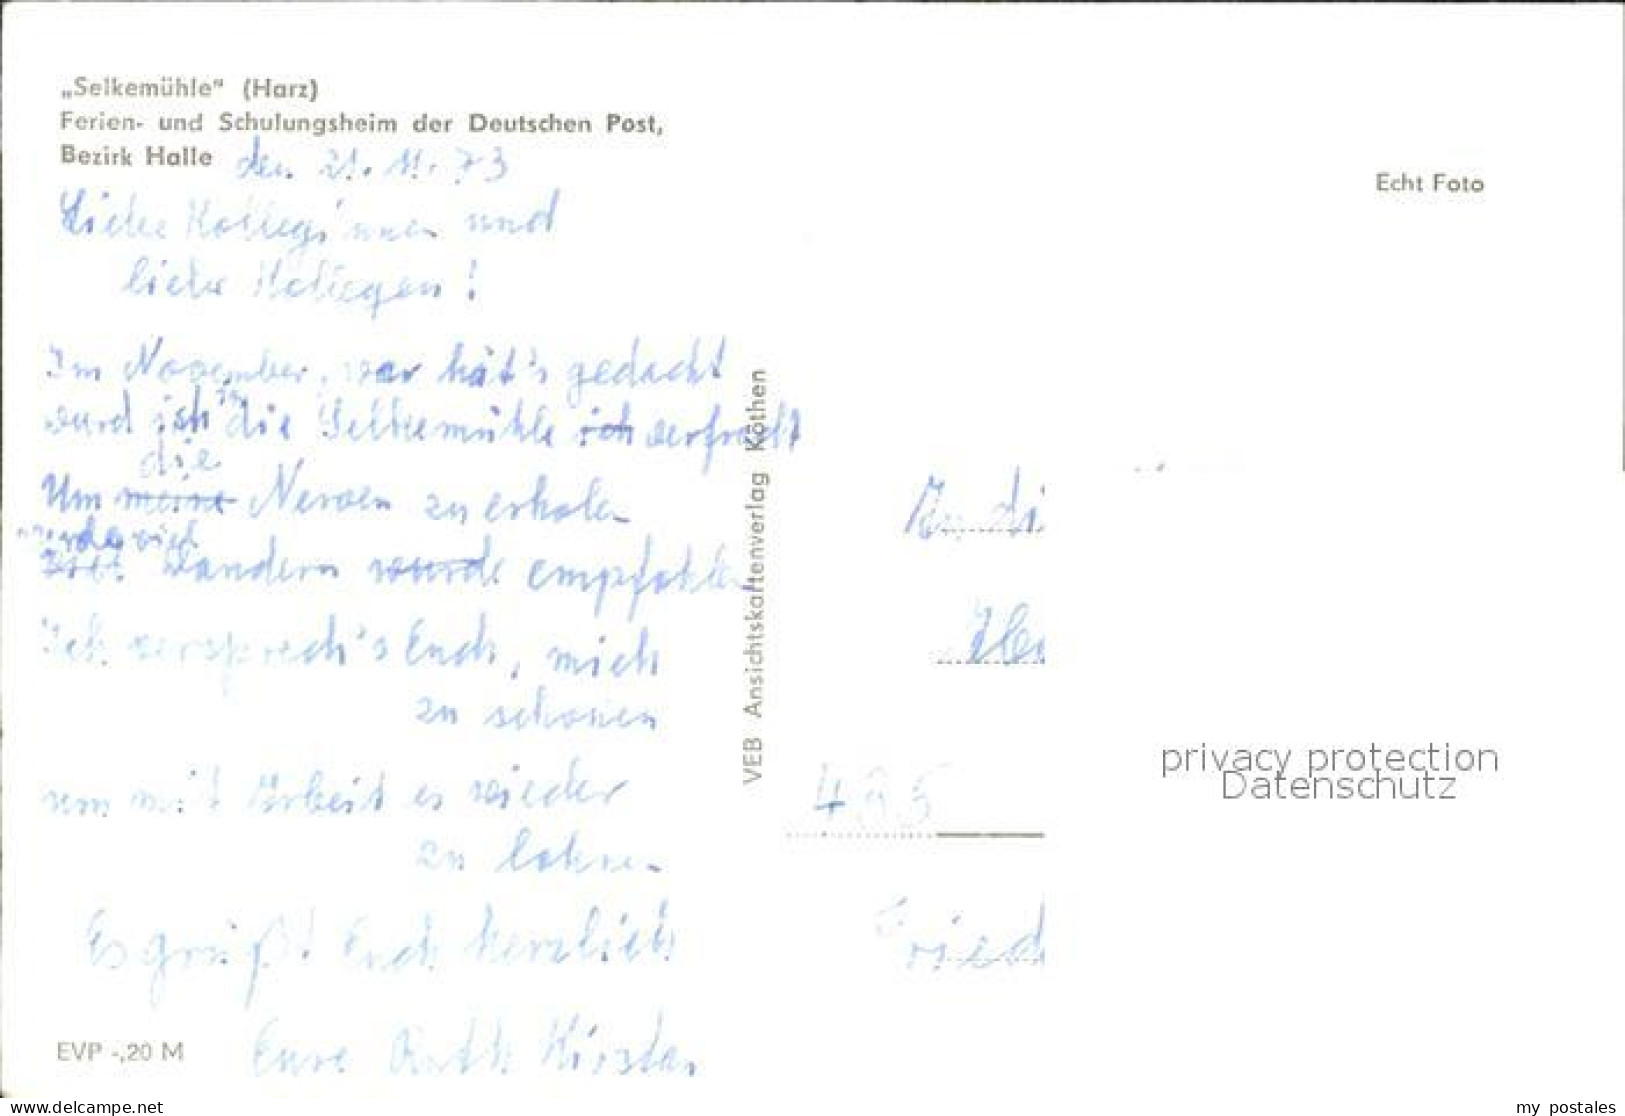 „Selkemühle" (Harz)
Ferien- und Schulungsheim der Deutschen Post,
Bezirk Halle den 21.11.73
Echt Foto
Liebe Kolleginnen und
liebe Kollegen!
Im November, wer hät's gedacht
wurd ich in die Selkemühle ich verfracht
die
Um meine Nerven zu erholen
wurde viel
Viel Wandern wurde empfohlen
Ich versprech's Euch, mich
zu schonen
um mit Arbeit es wieder
zu lohnen
Es grüßt Euch herzlich
Eure Ruth Kirsten
EVP -,20 M
VEB Ansichtskartenverlag Köthen
An di
485
Fried
privacy protection
Datenschutz
delcampe.net
my_postales